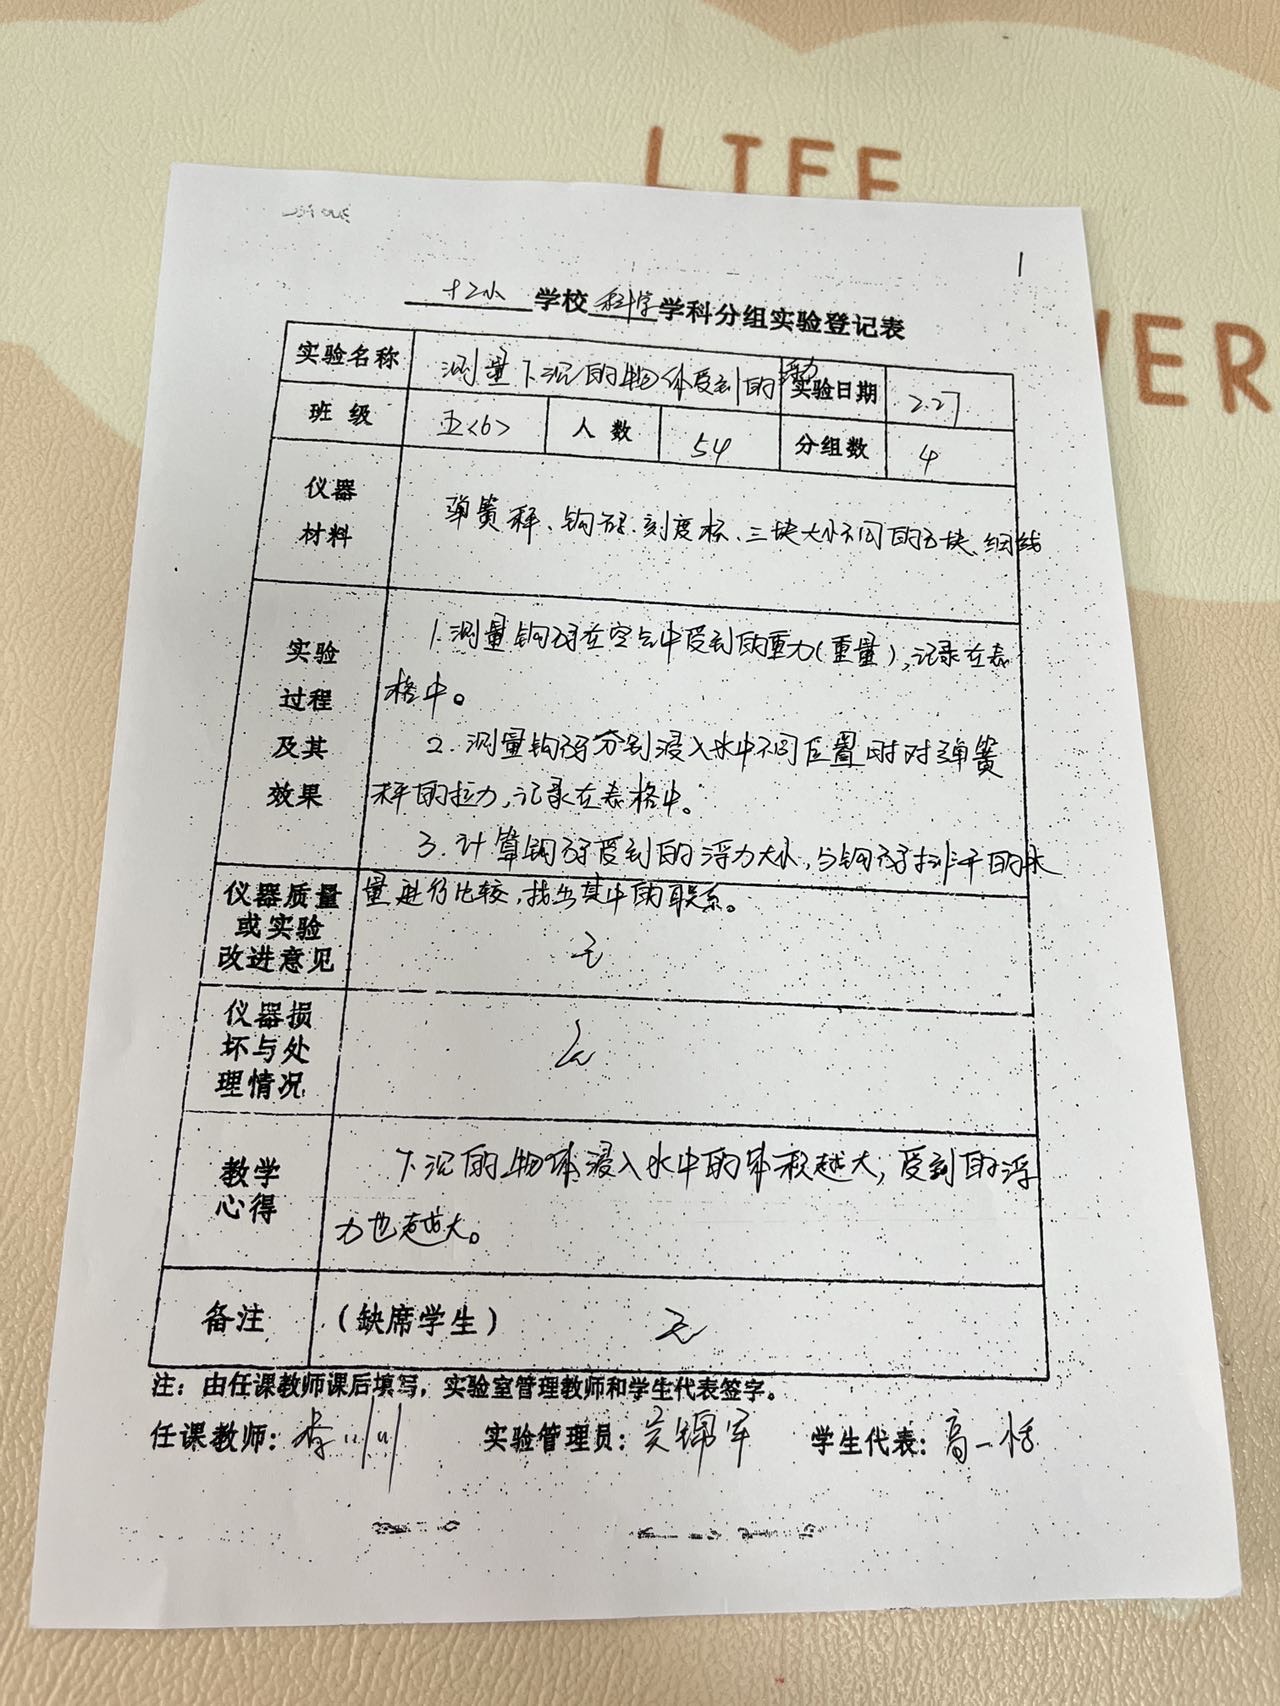 LIFE
VER
1
十二小学校科学学科分组实验登记表
实验名称 测量下沉的物体受到的浮力 实验日期 2.27
班级 五<6> 人数 54 分组数 4
仪器
材料
弹簧秤、钩码、刻度杯、三块大小不同的石块、细线
实验
过程
及其
效果
1.测量钩码在空气中受到的重力(重量),记录在表
格中。
2.测量钩码分别浸入水中不同位置时对弹簧
秤的拉力,记录在表格中。
3.计算钩码受到的浮力大小,与钩码排开的水
量进行比较,找出其中的联系。
仪器质量
或实验
改进意见
无
仪器损
坏与处
理情况
无
教学
心得
下沉的物体浸入水中的体积越大,受到的浮
力也越大。
备注 (缺席学生) 无
注:由任课教师课后填写,实验室管理教师和学生代表签字。
任课教师:李川川 实验管理员:吴锦军 学生代表:高一恬